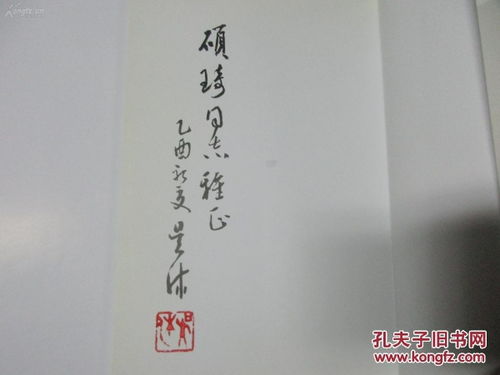 碩琦同志雅正
乙酉初夏吴休
孔夫子旧书网
www.kongfz.com